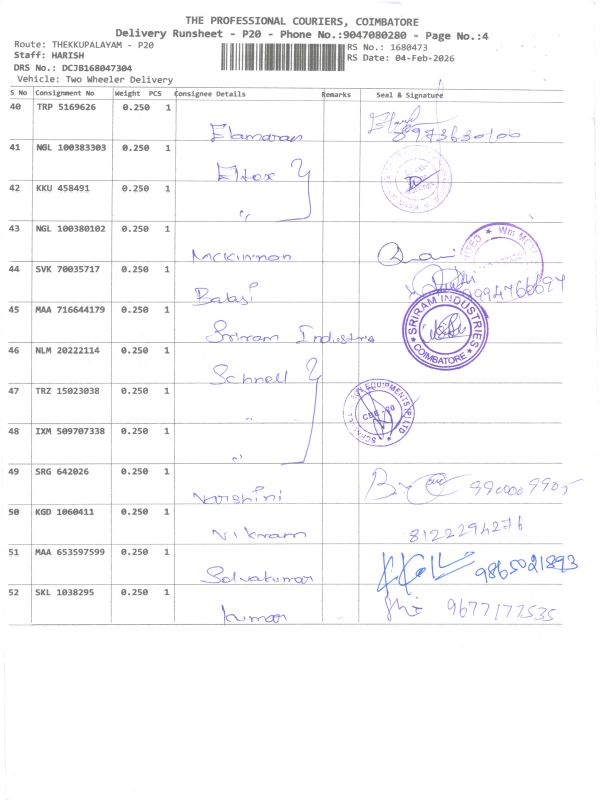 THE PROFESSIONAL COURIERS, COIMBATORE
Delivery Runsheet - P20 - Phone No.:9047080280 - Page No.:4
Route: THEKKUPALAYAM - P20
Staff: HARISH
RS No.: 1680473
DRS No.: DCJB168047304
RS Date: 04-Feb-2026
Vehicle: Two Wheeler Delivery
S No Consignment No Weight PCS Consignee Details Remarks Seal & Signature
40 TRP 5169626 0.250 1
Elamaran 8973630100
41 NGL 100383303 0.250 1
Eltex
42 KKU 458491 0.250 1
"
43 NGL 100380102 0.250 1
Mckinnon
44 SVK 70035717 0.250 1
Balaji 9994766697
45 MAA 716644179 0.250 1
Sriram Industries
SRIRAM INDUSTRIES
COIMBATORE
46 NLM 20222114 0.250 1
Schnell
47 TRZ 15023038 0.250 1
"
EQUIPMENTS (P) LTD
48 IXM 509707338 0.250 1
"
49 SRG 642026 0.250 1
Narshini 9900009905
50 KGD 1060411 0.250 1
Nikram 8122294276
51 MAA 653597599 0.250 1
Selvakumar 9865021893
52 SKL 1038295 0.250 1
Kumar 9677177535